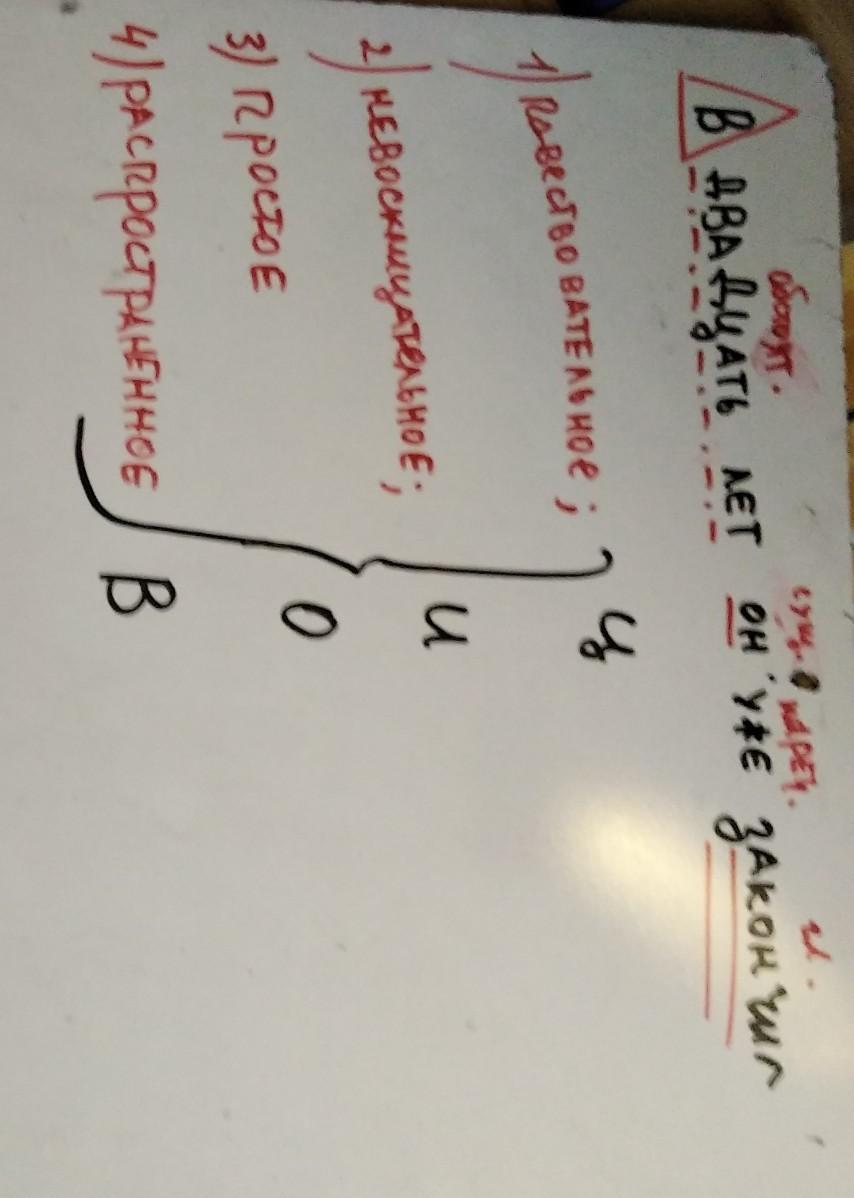 обстоят. сущ. нареч. гл.
В ДВАДЦАТЬ ЛЕТ ОН УЖЕ ЗАКОНЧИЛ
1) Повествовательное; Ц
2) НЕВОСКЛИЦАТЕЛЬНОЕ; И
3) ПРОСТОЕ О
4) РАСПРОСТРАНЕННОЕ В